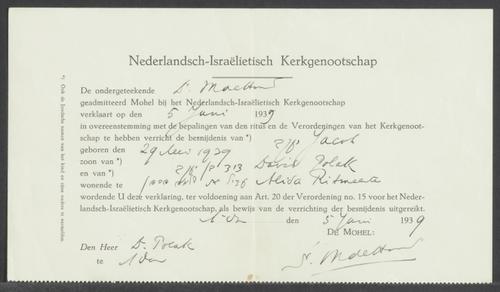 Nederlandsch-Israëlietisch Kerkgenootschap
De ondergeteekende
geadmitteerd Mohel bij het Nederlandsch-Israëlietisch Kerkgenootschap
verklaart op den 5 Juni 1939
in overeenstemming met de bepalingen van den ritus en de Verordeningen van het Kerkgenoot-
schap te hebben verricht de besnijdenis van *) Jacob
geboren den 29 Mei 1939
zoon van *) David Polak
en van *) Alida
wonende te
wordende U deze verklaring, ter voldoening aan Art. 20 der Verordening no. 15 voor het Neder-
landsch-Israëlietisch Kerkgenootschap, als bewijs van de verrichting der besnijdenis uitgereikt.
A'dam den 5 Juni 1939
DE MOHEL:
Den Heer D. Polak
te A'dam
*) Ook de Joodsche namen van het kind en zijne ouders te vermelden.